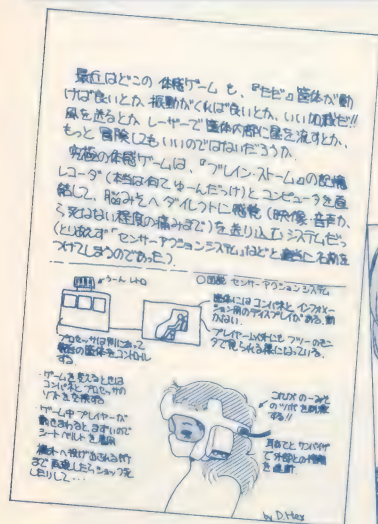 最近はどこの体感ゲームも、『ただ』筐体が動
けば良いとか、振動がくれば良いとか、いいかげんだ!!
風を送るとか、レーザーで筐体内部に星を流すとか、
もっと冒険してもいいのではないだろうか。
究極の体感ゲームは、『ブレイン・ストーム』の記憶
レコーダ(本当は何てゆーんだっけ)とコンピュータを直
結して、脳みそへダイレクトに感覚(映像・音声から
死なない程度の痛みまで)を送り込むシステムだっ
(とりあえず「センサーアクションシステム」などと適当に名前を
つけてしまうのであった)
○図解 センサーアクションシステム
筐体にはコンパネと インフォメー
ション用のディスプレイがある。動
かない。
プレイヤー以外にも フツーのモニ
タで見られる様になっている。
プロセッサは別にあって
複数の筐体をコントロール
する。
・ゲームを変えるときは
コンパネと プロセッサの
ソフトを交換する
・ゲーム中 プレイヤーが
動きまわると、まずいので
シートベルトを着用
これが のーみそ
のツボを刺激
する!!
耳あてと サンバイザ
で外部との情報
を遮断
機外へ投げ出される所
まで 再現したらショック死
したりして…
by D.Hex